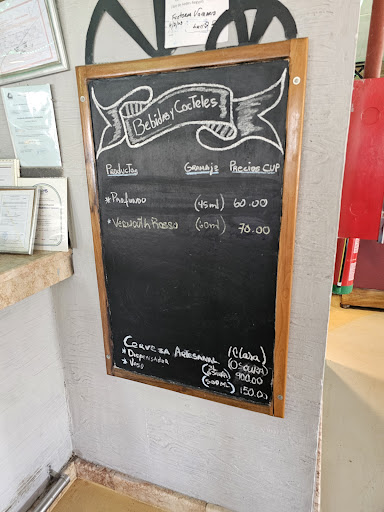 Bebidas y Cocteles
Productos Gramaje Precios CUP
* Profundo (45ml) 60.00
* Vermouth Rosso (60ml) 70.00
Cerveza Artesanal (Clara)
(Oscura)
* Dispensador 900.00
* Vaso (500ml) 150.00